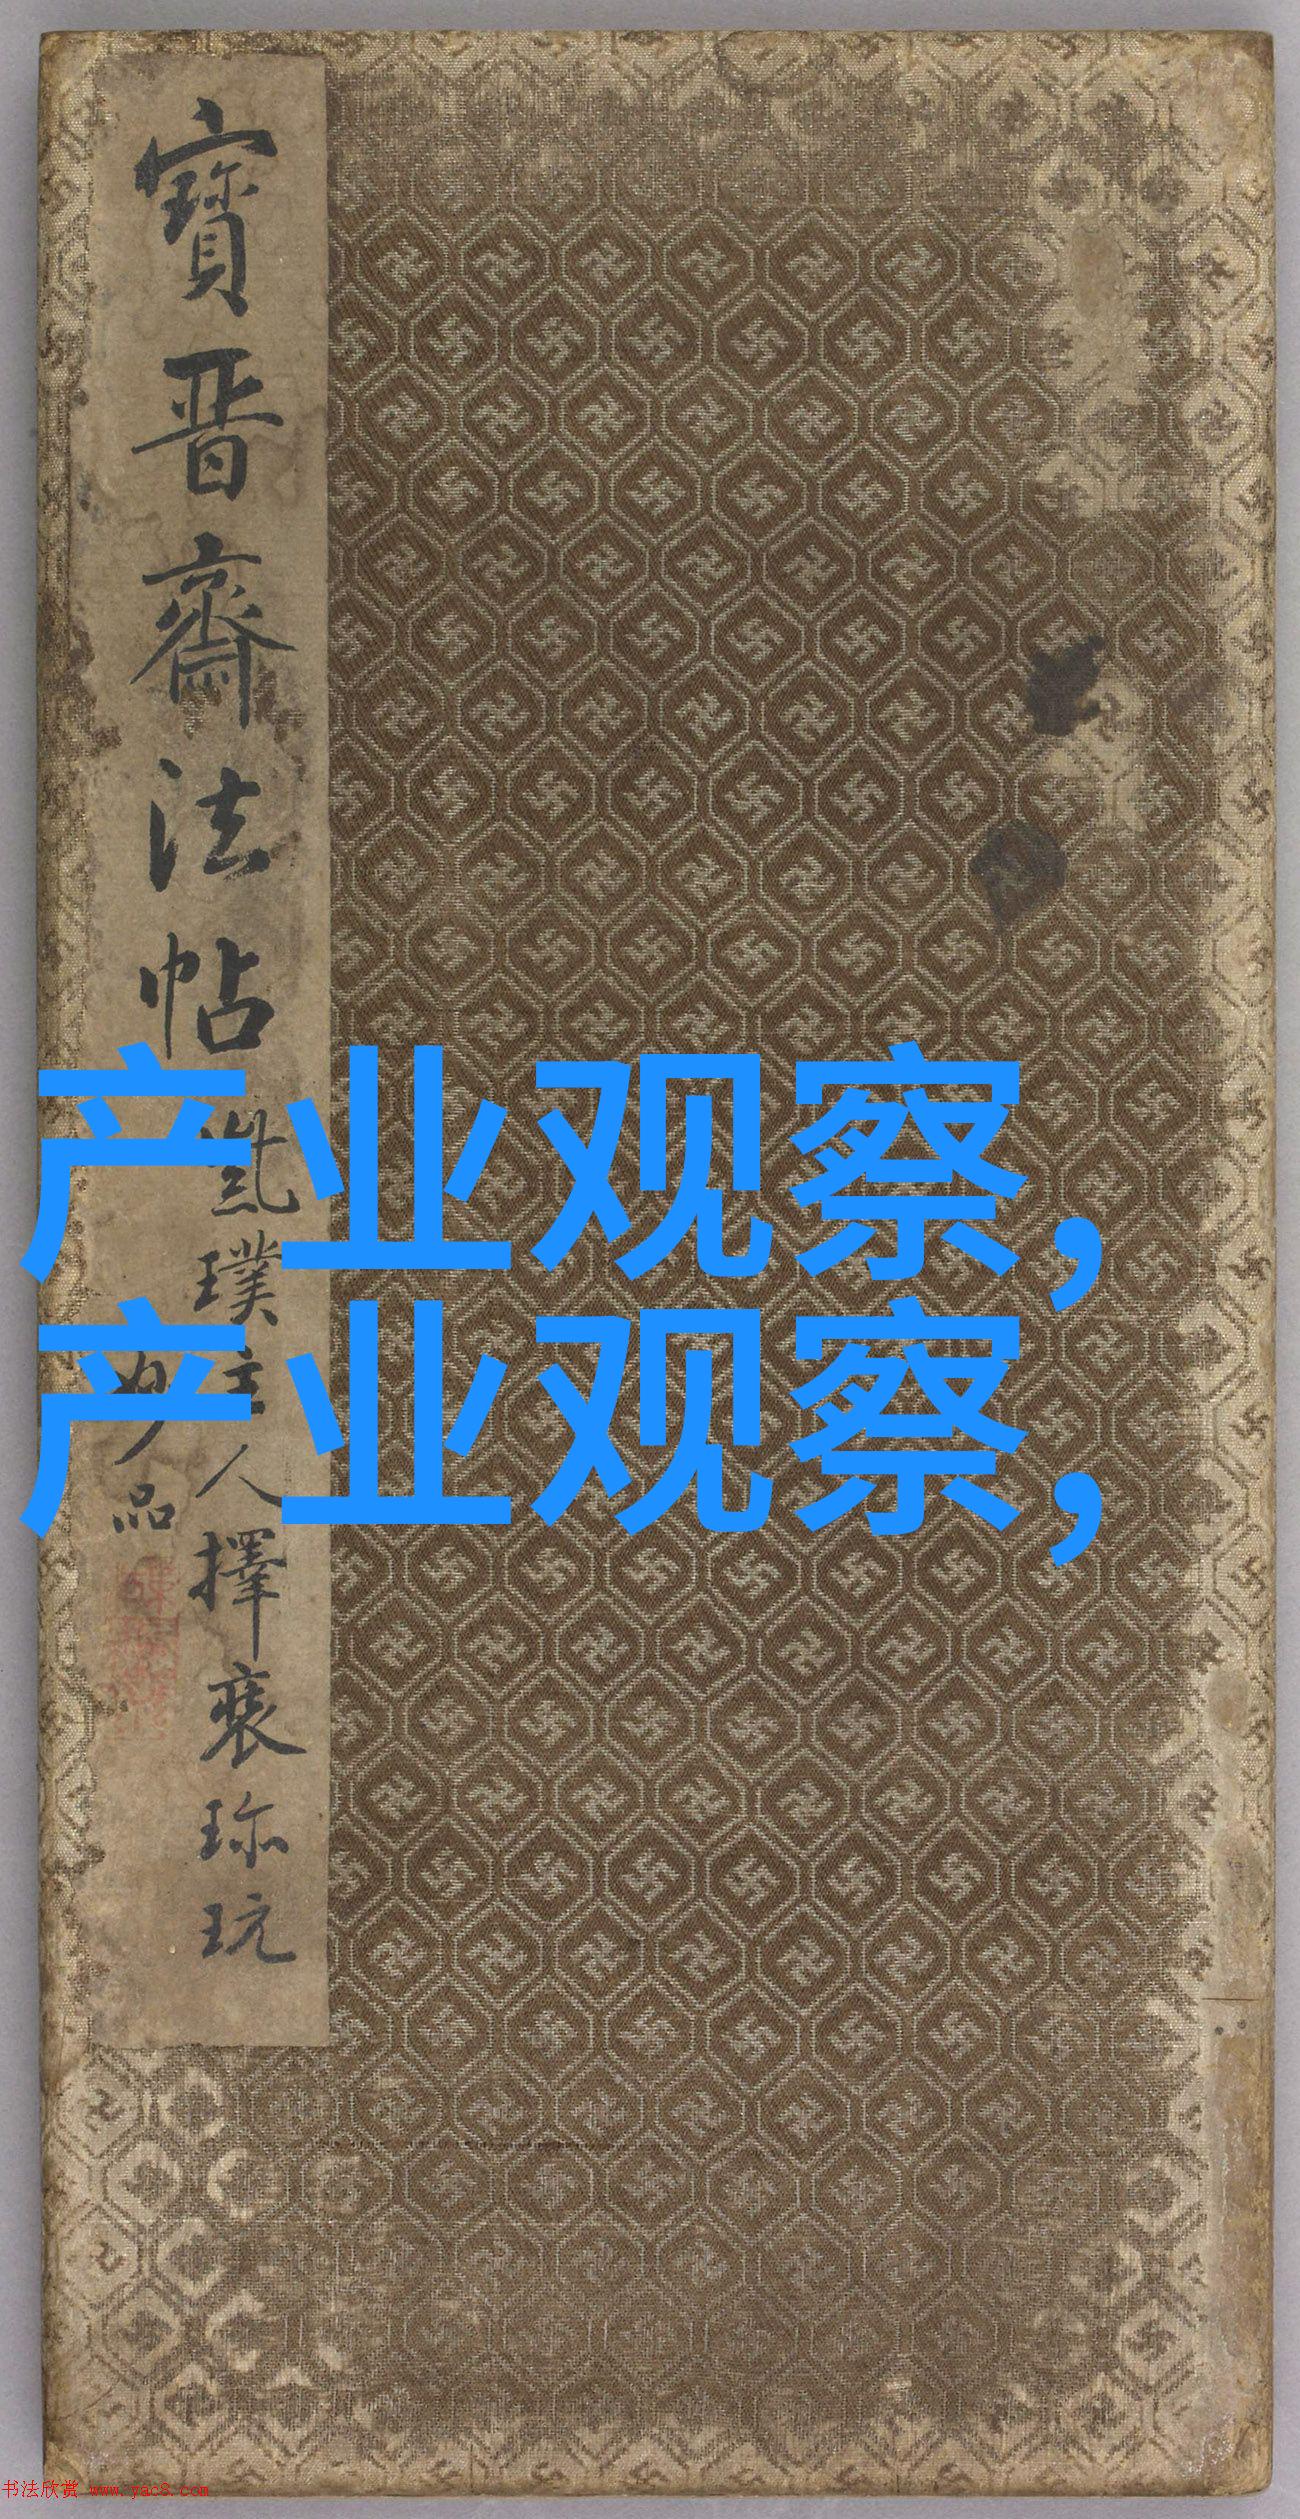 寶晉齋法帖
璞主人擇襃珎玩
妙品
产业观察,
产业观察,
书法欣赏 www.yac8.com